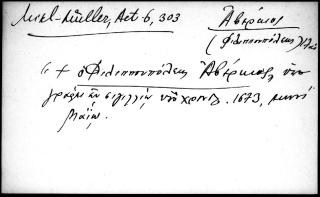 Micl-Müller, Act 6, 303
Ἀβέρκιος
(Φιλιππουπόλεως)
"+ ὁ Φιλιππουπόλεως Ἀβέρκιος, ὑπο
γράφει ἐν σιγιλλίῳ ὑπὸ χρονολ. 1673, μηνὶ
Μαΐῳ.